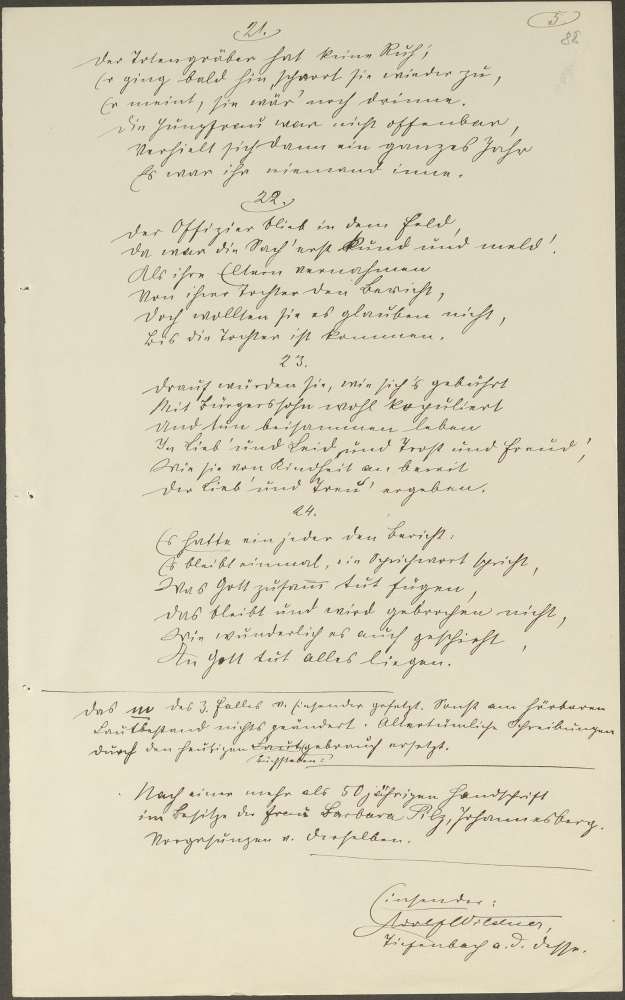 5
82
21.
Der Totengräber hat keine Ruh,
Er ging bald hin, scharrt sie wieder zu,
Er meint, sie wär' noch drinne.
Die Jungfrau war nicht offenbar,
Verhielt sich dann ein ganzes Jahr
Es war ihr niemand inne.
22.
Der Offizier blieb in dem Feld,
Da war die Sach' erst kund und meld'.
Als ihre Eltern vernahmen
Von ihrer Tochter den Bericht,
Doch wollten sie es glauben nicht,
Bis die Tochter ist kommen.
23.
Drauf wurden sie, wie sich's gebührt
Mit Bürgerssohn wohl kopuliert
Und tun beisammen leben
In Lieb' und Leid und Trost und Freud'!
Wie sie von Kindheit an bereit
Der Lieb' und Treu' ergeben.
24.
Es hatte ein jeder den Bericht:
Es bleibt einmal, ein Sprichwort spricht,
Was Gott zusamm tut fügen,
Das bleibt und wird gebrochen nicht,
Wie wunderlich es auch geschieht,
An Gott tut alles liegen.
Das m des 3. Falles v. Einsender gesetzt. Sonst am hörbaren
Lautbestand nichts geändert. Altertümliche Schreibungen
durch den heutigen Lautgebrauch ersetzt.
Buchstaben:
Nach einer mehr als 50 jährigen Handschrift
im Besitze der Frau Barbara Pilz, Johannesberg.
Vorgesungen v. derselben.
Einsender:
Adolf Wildner,
Tiefenbach a. d. Desse.